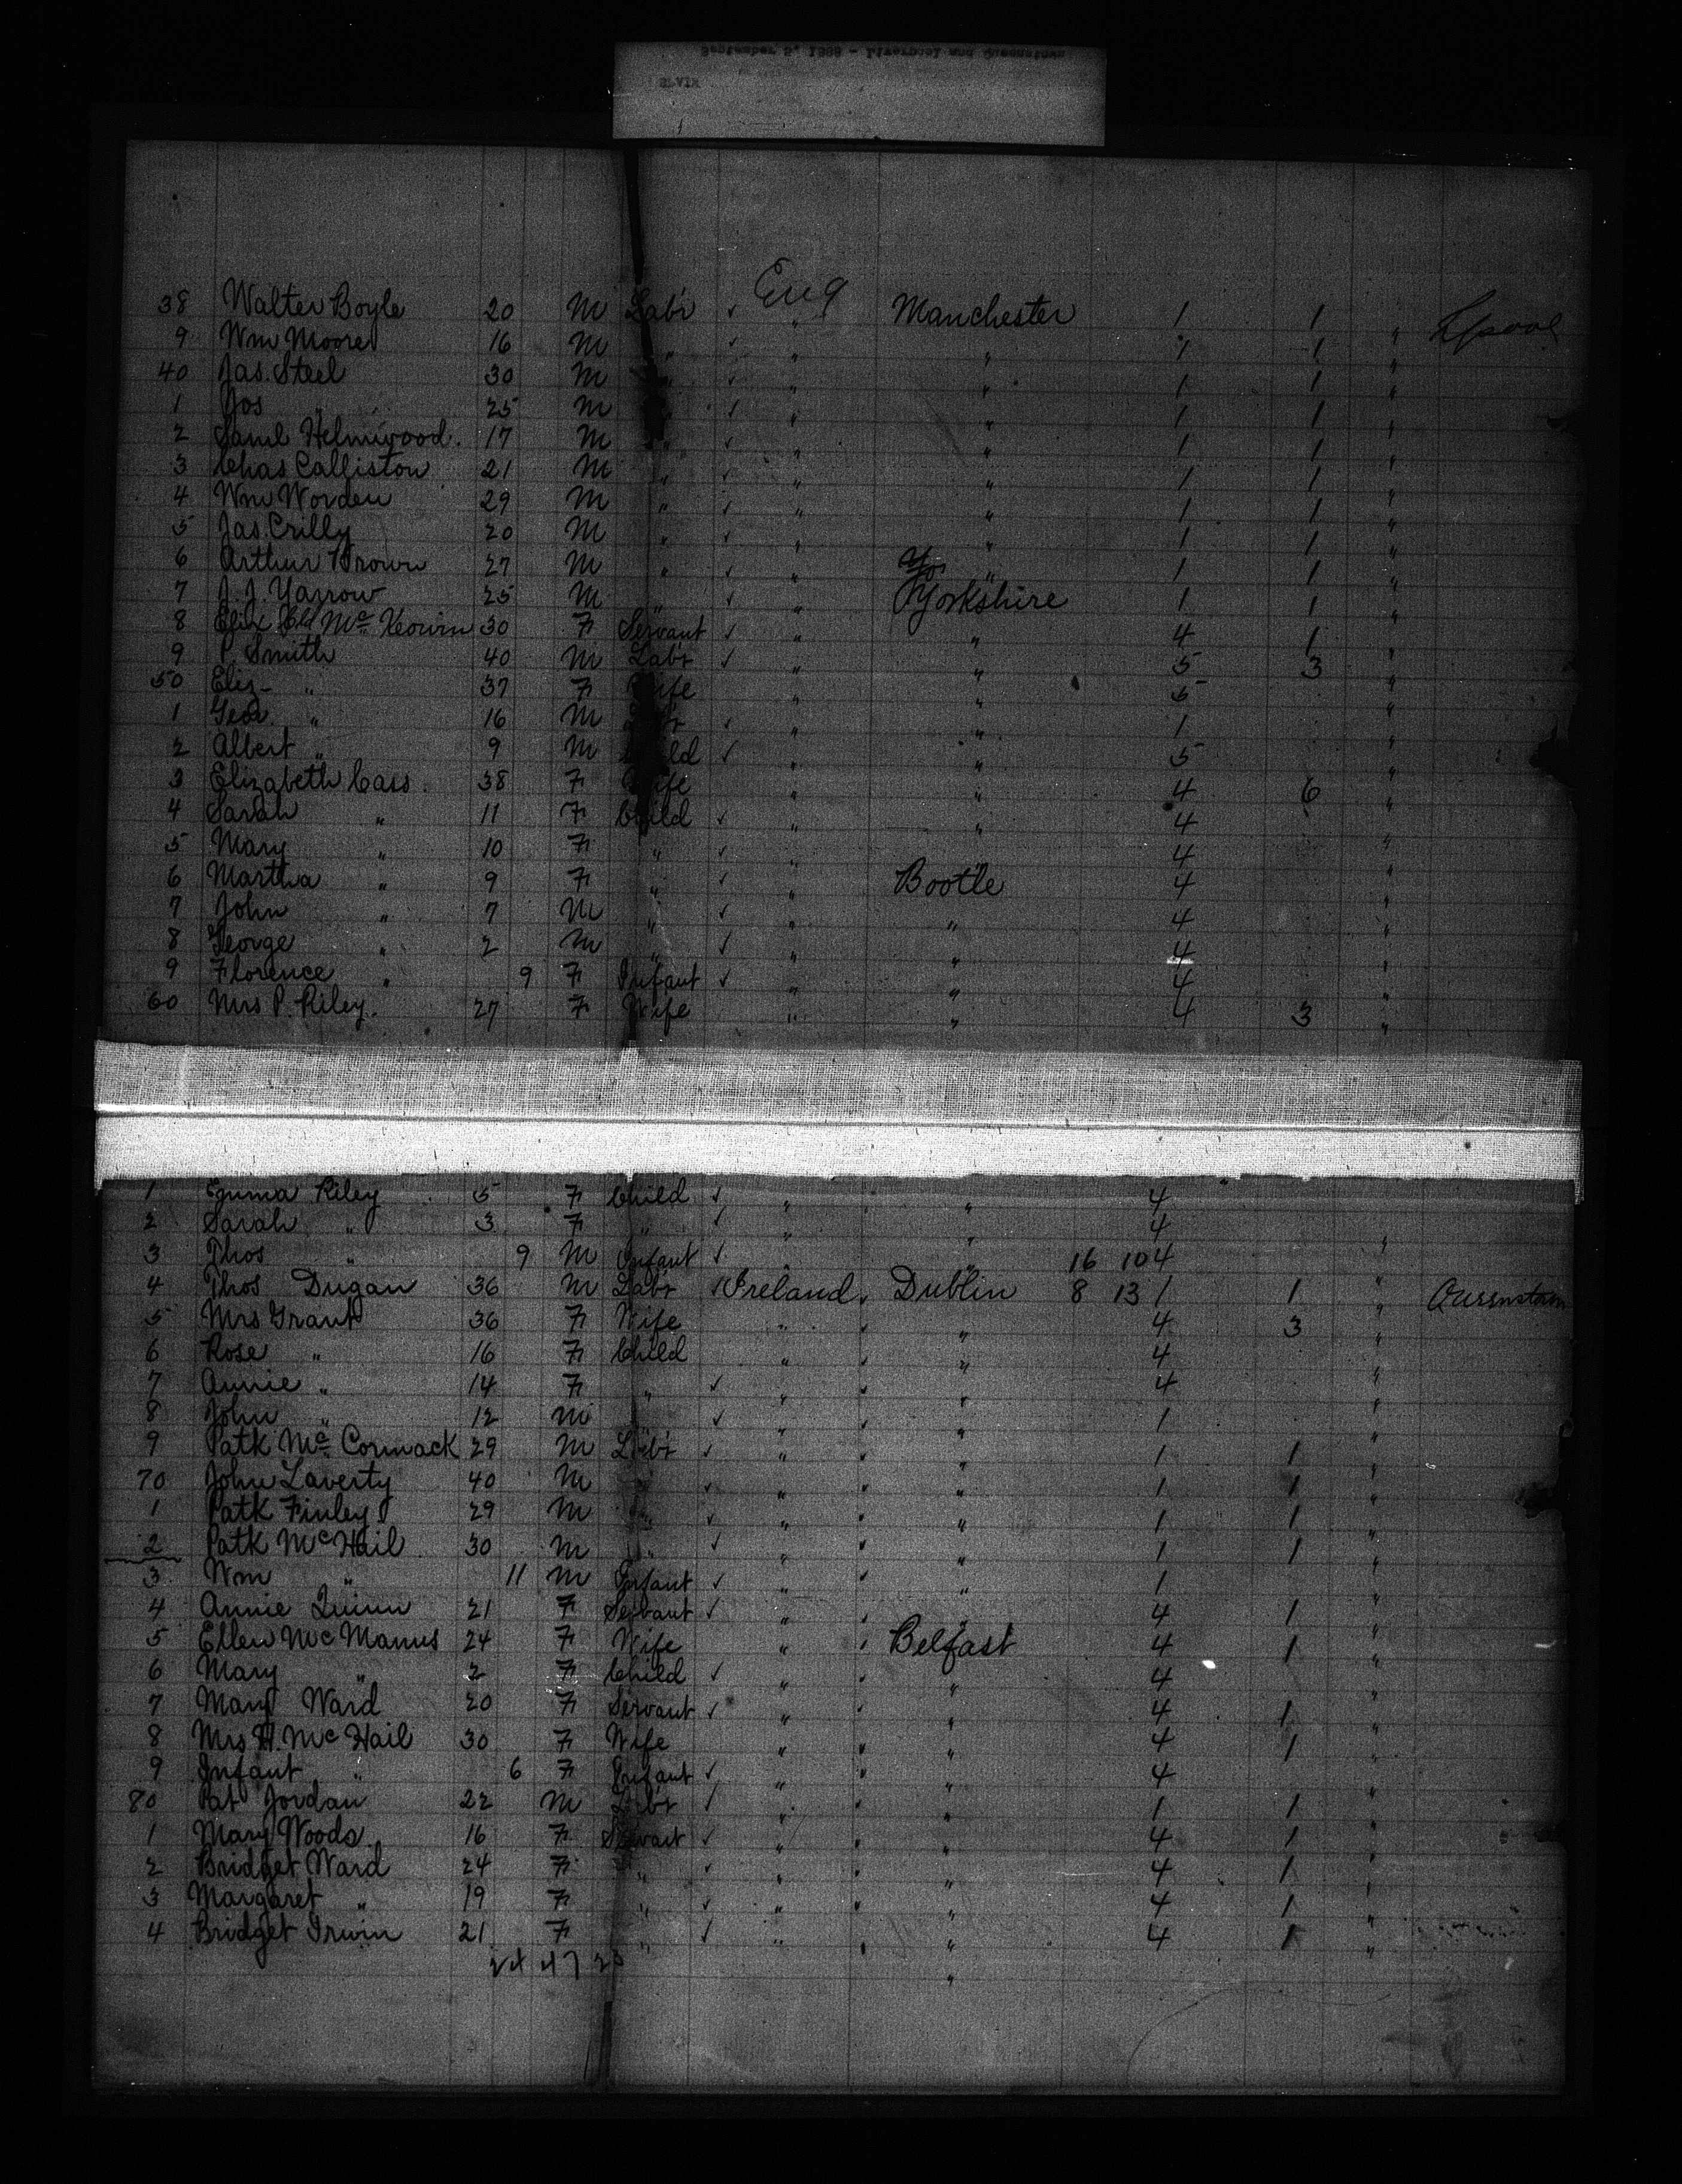 September 5, 1888 - Liverpool and Queenstown
SPAIN
38 Walter Boyle 20 M Labr ✓ Eng Manchester 1 1 " Lpool
9 Wm Moore 16 M " ✓ " " 1 1 "
40 Jas. Steel 30 M " ✓ " " 1 1 "
1 Jos " 25 M " ✓ " " 1 1 "
2 Saml Helmwood. 17 M " ✓ " " 1 1 "
3 Chas Calliston 21 M " ✓ " " 1 1 "
4 Wm Worden 29 M " ✓ " " 1 1 "
5 Jas. Crilly 20 M " ✓ " " 1 1 "
6 Arthur Brown 27 M " ✓ " " 1 1 "
7 J. J. Yarrow 25 M " ✓ " Yorkshire 1 1 "
8 Mc Keowin 30 F Servant ✓ " " 4 1 "
9 P Smith 40 M Labr ✓ " " 5 3 "
50 Eliz- " 37 F Wife " " 5 "
1 Geo. " 16 M ✓ " " 1 "
2 Albert " 9 M Child ✓ " " 5 "
3 Elizabeth Cass. 38 F Wife " " 4 6 "
4 Sarah " 11 F Child ✓ " " 4 "
5 Mary " 10 F " ✓ " " 4 "
6 Martha " 9 F " ✓ " Bootle 4 "
7 John " 7 M " ✓ " " 4 "
8 George " 2 M " ✓ " " 4 "
9 Florence " 9 F Infant ✓ " " 4 "
60 Mrs P. Riley. 27 F Wife " " 4 3 "
1 Emma Riley 5 F Child ✓ " " 4 "
2 Sarah " 3 F " ✓ " " 4 "
3 Thos " 9 M Infant ✓ " " 16 10 4
4 Thos Dugan 36 M Labr ✓ Ireland Dublin 8 13 1 1 " Queenstown
5 Mrs Grant 36 F Wife " " 4 3 "
6 Rose " 16 F Child " " 4 "
7 Annie " 14 F " ✓ " " 4 "
8 John " 12 M ✓ " " 1 "
9 Patk Mc Cormack 29 M Labr ✓ " " 1 1 "
70 John Laverty 40 M ✓ " " 1 1 "
1 Patk Finley 29 M " ✓ " " 1 1 "
2 Patk McHail 30 M " ✓ " " 1 1 "
3 Wm " 11 M Infant ✓ " " 1 "
4 Annie Quinn 21 F Servant ✓ " " 4 1 "
5 Ellen McManus 24 F Wife " Belfast 4 1 "
6 Mary " 2 F Child ✓ " " 4 "
7 Mary Ward 20 F Servant ✓ " " 4 1 "
8 Mrs H. McHail 30 F Wife " " 4 1 "
9 Infant " 6 F Infant ✓ " " 4 "
80 Pat Jordan 22 M Labr ✓ " " 1 1 "
1 Mary Woods 16 F Servant ✓ " " 4 1 "
2 Bridget Ward 24 F " ✓ " " 4 1 "
3 Margaret " 19 F " ✓ " " 4 1 "
4 Bridget Irwin 21 F " ✓ " " 4 1 "
24 47 23 "